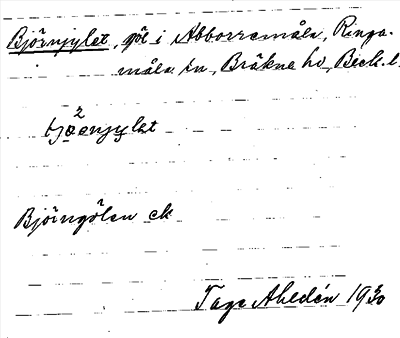 Björnjylet, göl i Abborremåla, Ringa-
måla sn, Bräkne hd, Blek. l.
Björngölen ek
Tage Ahldén 1930